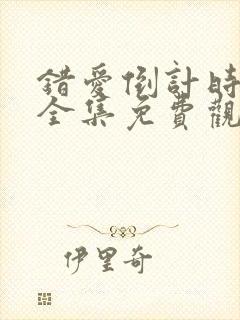 錯愛倒計時
全集免費觀
伊里奇